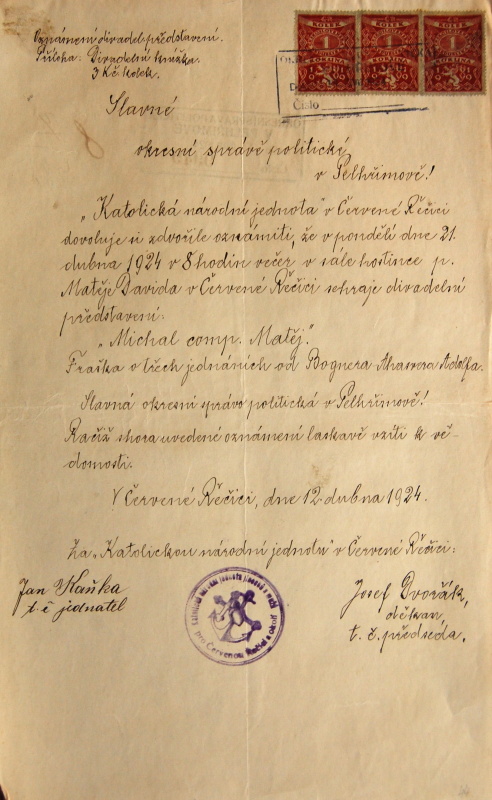 Oznámení divadel. představení.
Příloha: Divadelní knížka.
3 Kč kolek.
KOLEK KOLEK KOLEK
1 1 1
KORUNA KORUNA KORUNA
Číslo
Slavné
okresní správě politické
v Pelhřimově!
„Katolická národní jednota" v Červené Řečici
dovoluje si zdvořile oznámiti, že v pondělí dne 21.
dubna 1924 v 8 hodin večer v sále hostince p.
Matěje Davida v Červené Řečici sehraje divadelní
představení:
„Michal comp. Matěj".
Fraška o třech jednáních od Bognera Ahasvera Adolfa.
Slavná okresní správo politická v Pelhřimově!
Račiž shora uvedené oznámení laskavě vzíti k vě-
domosti.
V Červené Řečici, dne 12. dubna 1924.
Za „Katolickou národní jednotu" v Červené Řečici:
Jan Kaňka
t. č. jednatel
Josef Dvořák,
děkan,
t. č. předseda.
pro Červenou Řečici a okolí